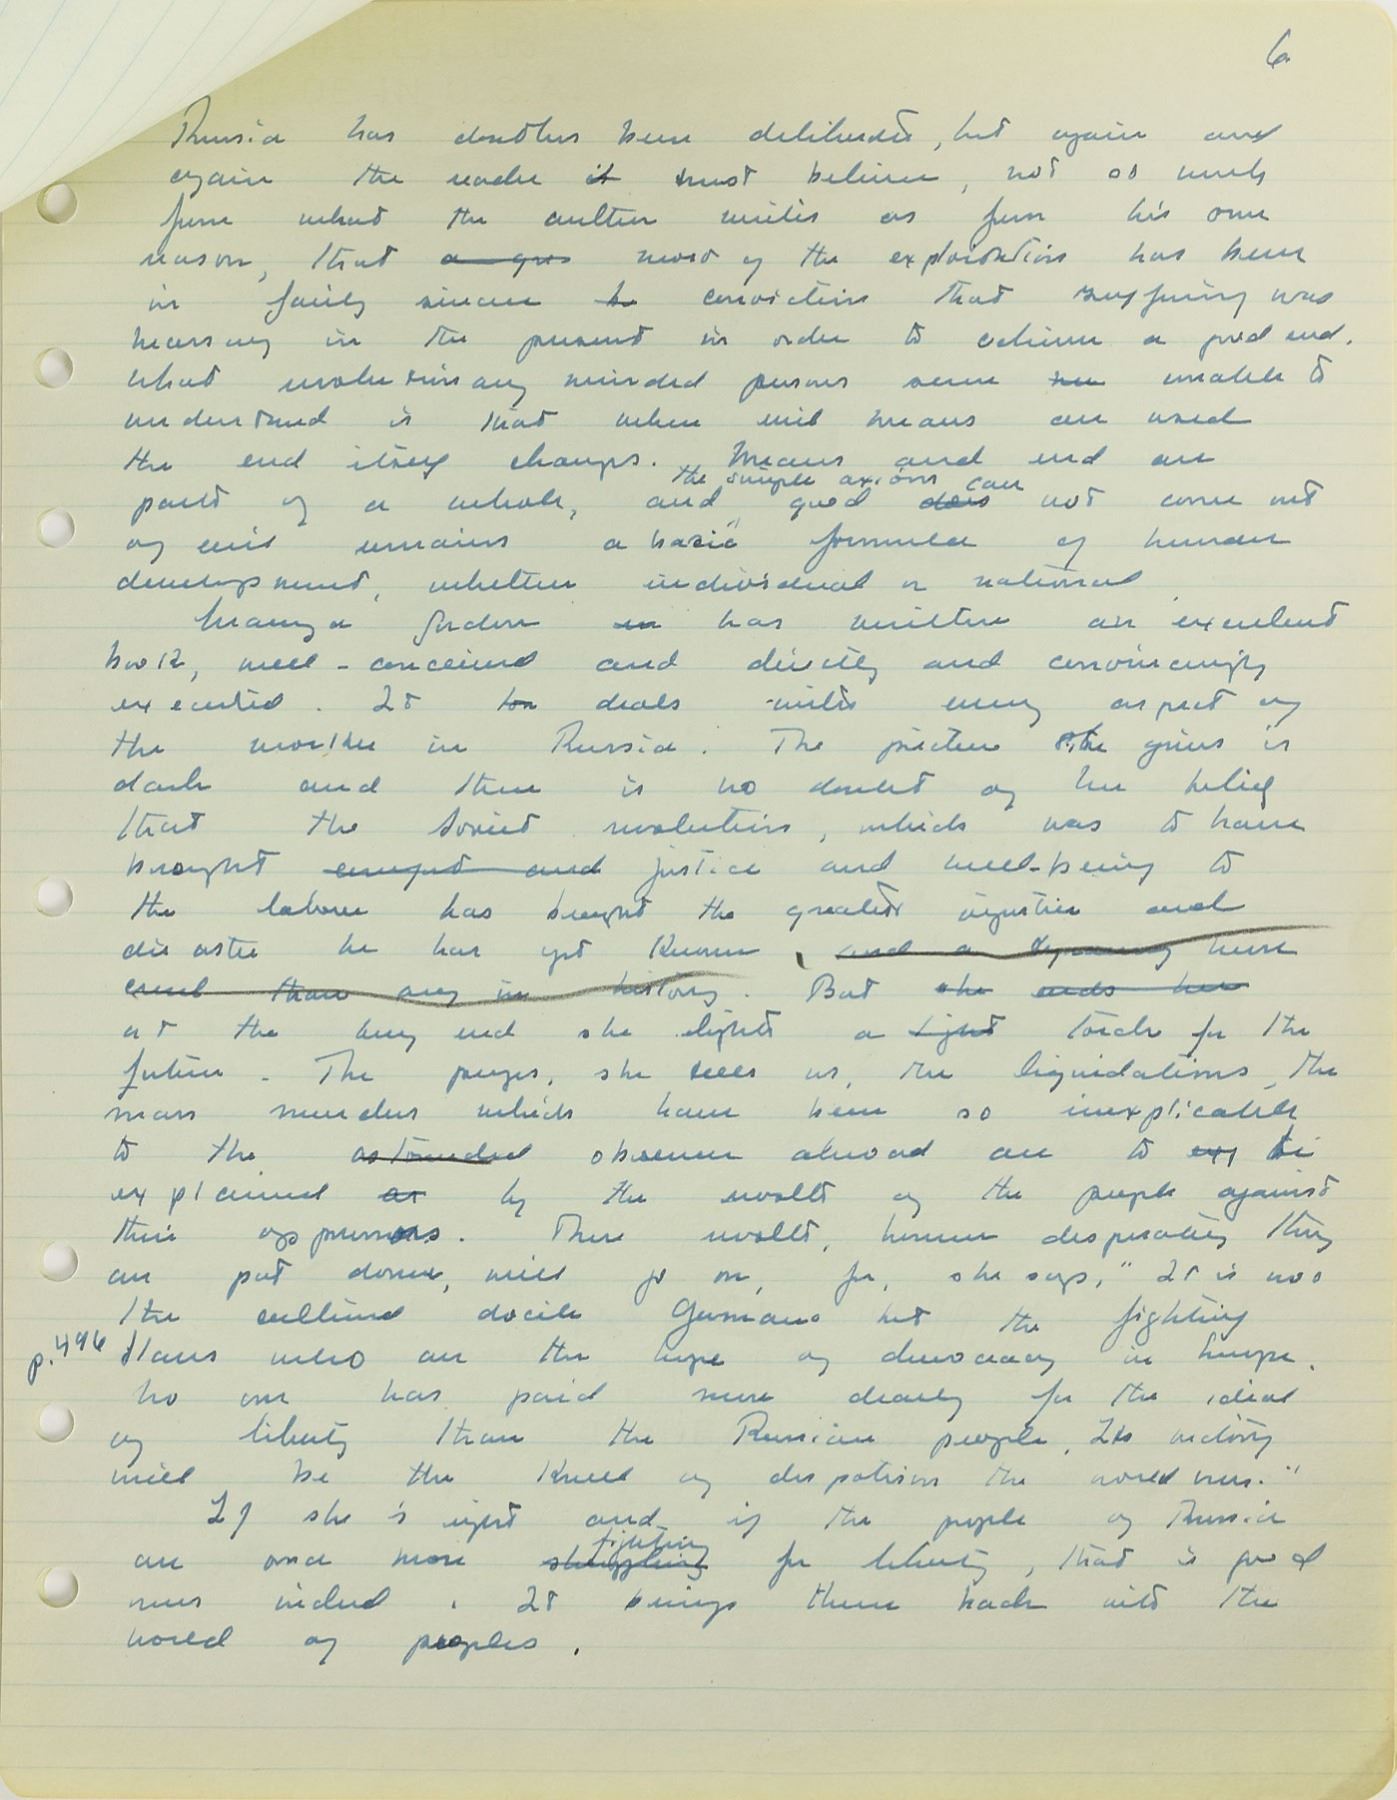 6
Russia has doubtless been deliberate, but again and
again the reader it must believe, not so much
from what the author writes as from his own
reason, that a gres most of the exploitation has been
in fairly sincere be conviction that suffering was
necessary in the present in order to achieve a good end.
What revolutionary minded persons seem un unable to
understand is that when evil means are used
the end itself changes. Means and end are
the simple axiom can
part of a whole, and "good does not come out
of evil remains a basic" formula of human
development, whether individual or national.
Manya Gordon in has written an excellent
book, well-conceived and directly and convincingly
executed. It has deals with every aspect of
the worker in Russia. The picture she gives is
dark and there is no doubt of her belief
that the Soviet revolution, which was to have
brought comfort and justice and well-being to
the laborer has brought the greatest injustice and
disaster he has yet known, and a tyranny more
cruel than any in history. But she ends her
at the very end she lights a light torch for the
future. The purges, she tells us, the liquidations, the
mass murders which have been so inexplicable
to the astounded observer abroad are to exp be
explained as by the revolts of the people against
their oppressors. These revolts, however desperately they
are put down, will go on, for, she says, "It is not
the cultured docile Germans but the fighting
p. 496 Slavs who are the hope of democracy in Europe.
No one has paid more dearly for the ideal
of liberty than the Russian people. Its victory
will be the knell of despotism the world over."
If she is right and if the people of Russia
fighting
are once more struggling for liberty, that is good
news indeed. It brings them back into the
world of peoples.